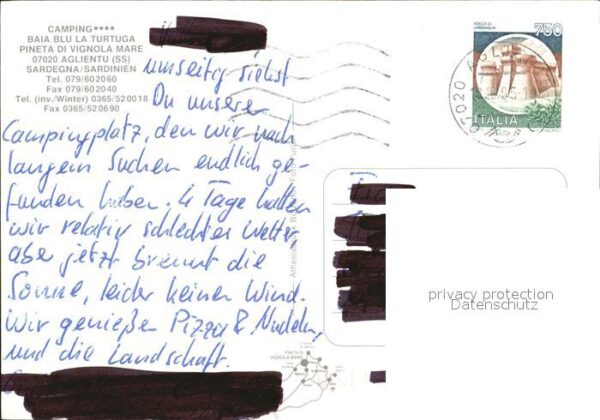 CAMPING****
BAIA BLU LA TURTUGA
PINETA DI VIGNOLA MARE
07020 AGLIENTU (SS)
SARDEGNA/SARDINIEN
Tel. 079/602060
Fax 079/602040
Tel. (inv./Winter) 0365/520018
Fax 0365/520690
umseitig siehst
Du unseren
Campingplatz, den wir nach
langem Suchen endlich ge-
funden haben. 4 Tage hatten
wir relativ schlechtes Wetter,
aber jetzt brennt die
Sonne, leider keinen Wind.
Wir genießen Pizza & Nudeln
und die Landschaft.
ROCCA DI
URBISAGLIA
750
ITALIA
07020
PINETA DI
VIGNOLA MARE
privacy protection
Datenschutz